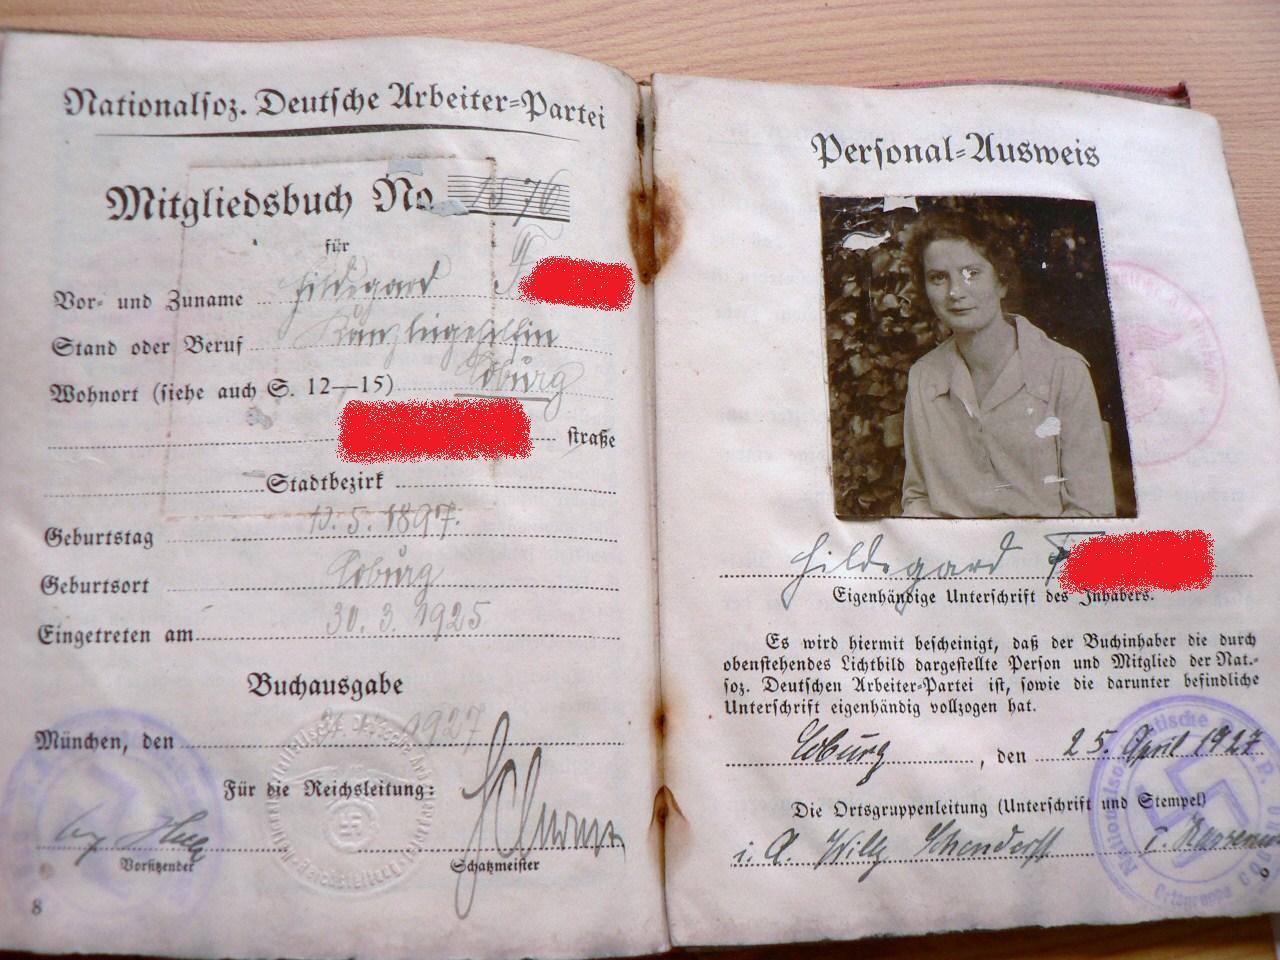 Nationalsoz. Deutsche Arbeiter-Partei
Mitgliedsbuch No.
für
Vor- und Zuname Hildegard F
Stand oder Beruf Kanzleigehilfin
Wohnort (siehe auch S. 12—15) Coburg
straße
Stadtbezirk
Geburtstag 5. 1897.
Geburtsort Coburg
Eingetreten am 30. 3. 1925
Buchausgabe
München, den 1927
Für die Reichsleitung:
Vorsitzender
Schatzmeister
8
Personal-Ausweis
Hildegard F
Eigenhändige Unterschrift des Inhabers.
Es wird hiermit bescheinigt, daß der Buchinhaber die durch
obenstehendes Lichtbild dargestellte Person und Mitglied der Nat.-
soz. Deutschen Arbeiter-Partei ist, sowie die darunter befindliche
Unterschrift eigenhändig vollzogen hat.
Coburg, den 25. April 1927
Die Ortsgruppenleitung (Unterschrift und Stempel)
i. A. Willy
Ortsgruppe